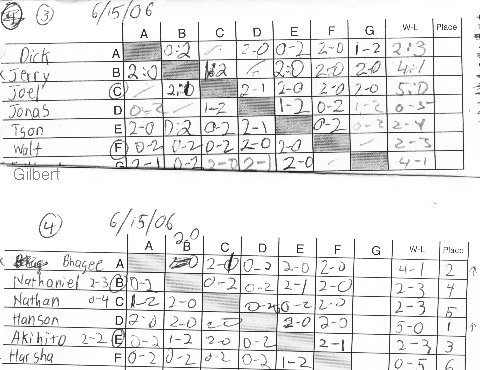 ③ 6/15/06
A B C D E F G W-L Place
Dick A 0:2 - 2-0 0-2 2-0 1-2 2:3
Jerry B 2:0 2 - 2:0 2-0 2-0 4:1
Joel C 2:1 2-0 2-0 2-0 5:0
Jonas D 0-2 1-2 1-2 0-2 1-2 0-5
Tson E 2-0 0:2 0-2 2-1 0-2 0-2 2-4
Walt F 0-2 0-2 0-2 2-0 2-0 2-3
G 2-1 0-2 2-0 2-1 2-0 4-1
Gilbert
④ 6/15/06
2-0
A B C D E F G W-L Place
Bhagee A 2-0 0-2 2-0 2-0 4-1 2
Nathaniel 2-3 B 0-2 0-2 0-2 2-1 2-0 2-3 4
Nathan 0-4 C 1-2 2-0 0-2 0-2 2-0 2-3 5
Hanson D 2-0 2-0 2-0 2-0 2-0 5-0 1
Akihito 2-2 E 0-2 1-2 2-0 0-2 2-1 2-3 3
Harsha F 0-2 0-2 0-2 0-2 1-2 0-5 6